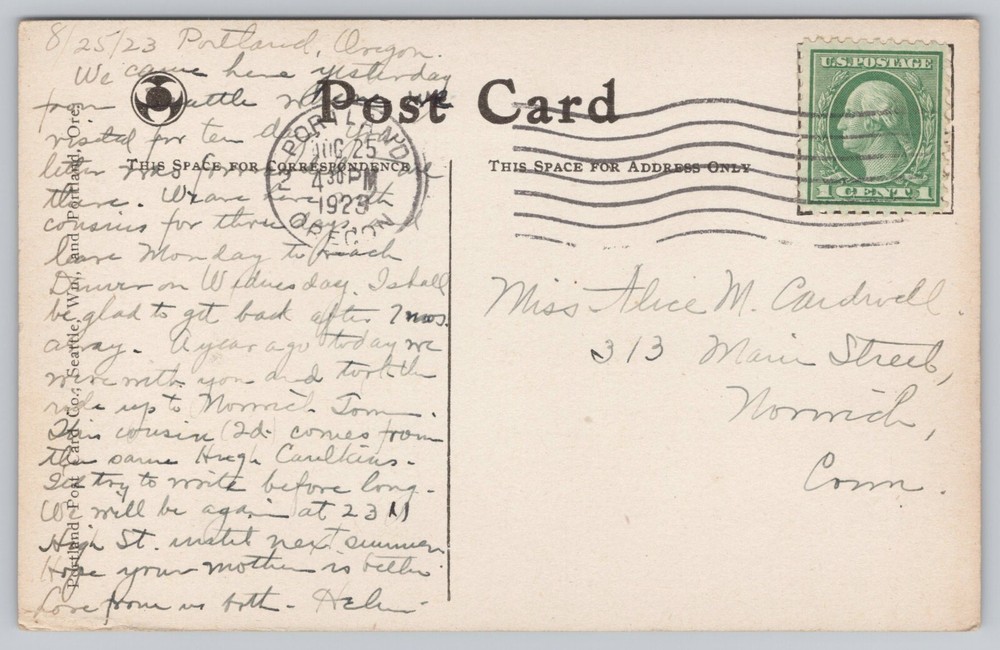 8/25/23 Portland, Oregon.
We came here yesterday
from Seattle where we
visited for ten days. Your
letter was forwarded
there. We are here with
cousins for three days and
leave Monday to reach
Denver on Wednesday. I shall
be glad to get back after 2 mos.
away. A year ago today we
were with you and took the
ride up to Norwich Town.
This cousin (2d) comes from
the same Hugh Caulkins.
I'll try to write before long.
We will be again at 23
High St. until next summer.
Hope your mother is better.
Love from us both. Helen
Post Card
THIS SPACE FOR CORRESPONDENCE
THIS SPACE FOR ADDRESS ONLY
PORTLAND
AUG 25
4 30 PM
1923
OREGON
U.S. POSTAGE
1 CENT 1
Miss Alice M. Cardwell.
313 Main Street,
Norwich,
Conn.
Portland Post Card Co., Seattle, Wn., and Portland, Ore.